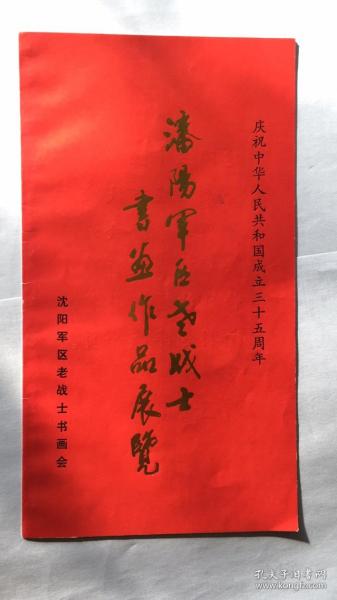 庆祝中华人民共和国成立三十五周年
瀋陽军区老战士
書画作品展覽
沈阳军区老战士书画会
孔夫子旧书网